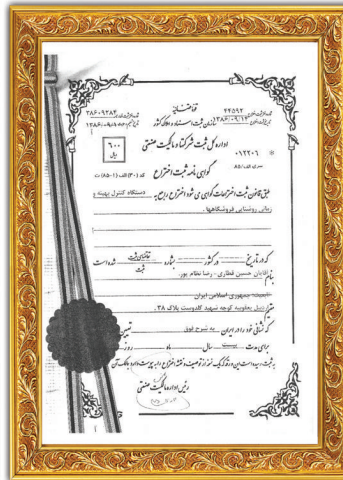 قوه قضائیه
۴۲۵۹۲
سازمان ثبت اسناد و املاک کشور
اداره کل ثبت شرکتها و مالکیت صنعتی
۶۰۰
ریال
گواهی نامه ثبت اختراع
طبق قانون ثبت اختراعات گواهی می شود اختراع راجع به دستگاه کنترل بهینه و
زمانی روشنایی فروشگاهها .
که در تاریخ در کشور بشماره تقاضای ثبت شده است
ثبت
بنام آقایان حسین قطاری - رضا نظام پور.
تابعیت جمهوری اسلامی ایران
کوچه شهید کلدوست پلاک ۳۸.
که نشانی خود را در ایران به شرح فوق تعیین
برای مدت بیست سال ماه روز
رئیس اداره مالکیت صنعتی